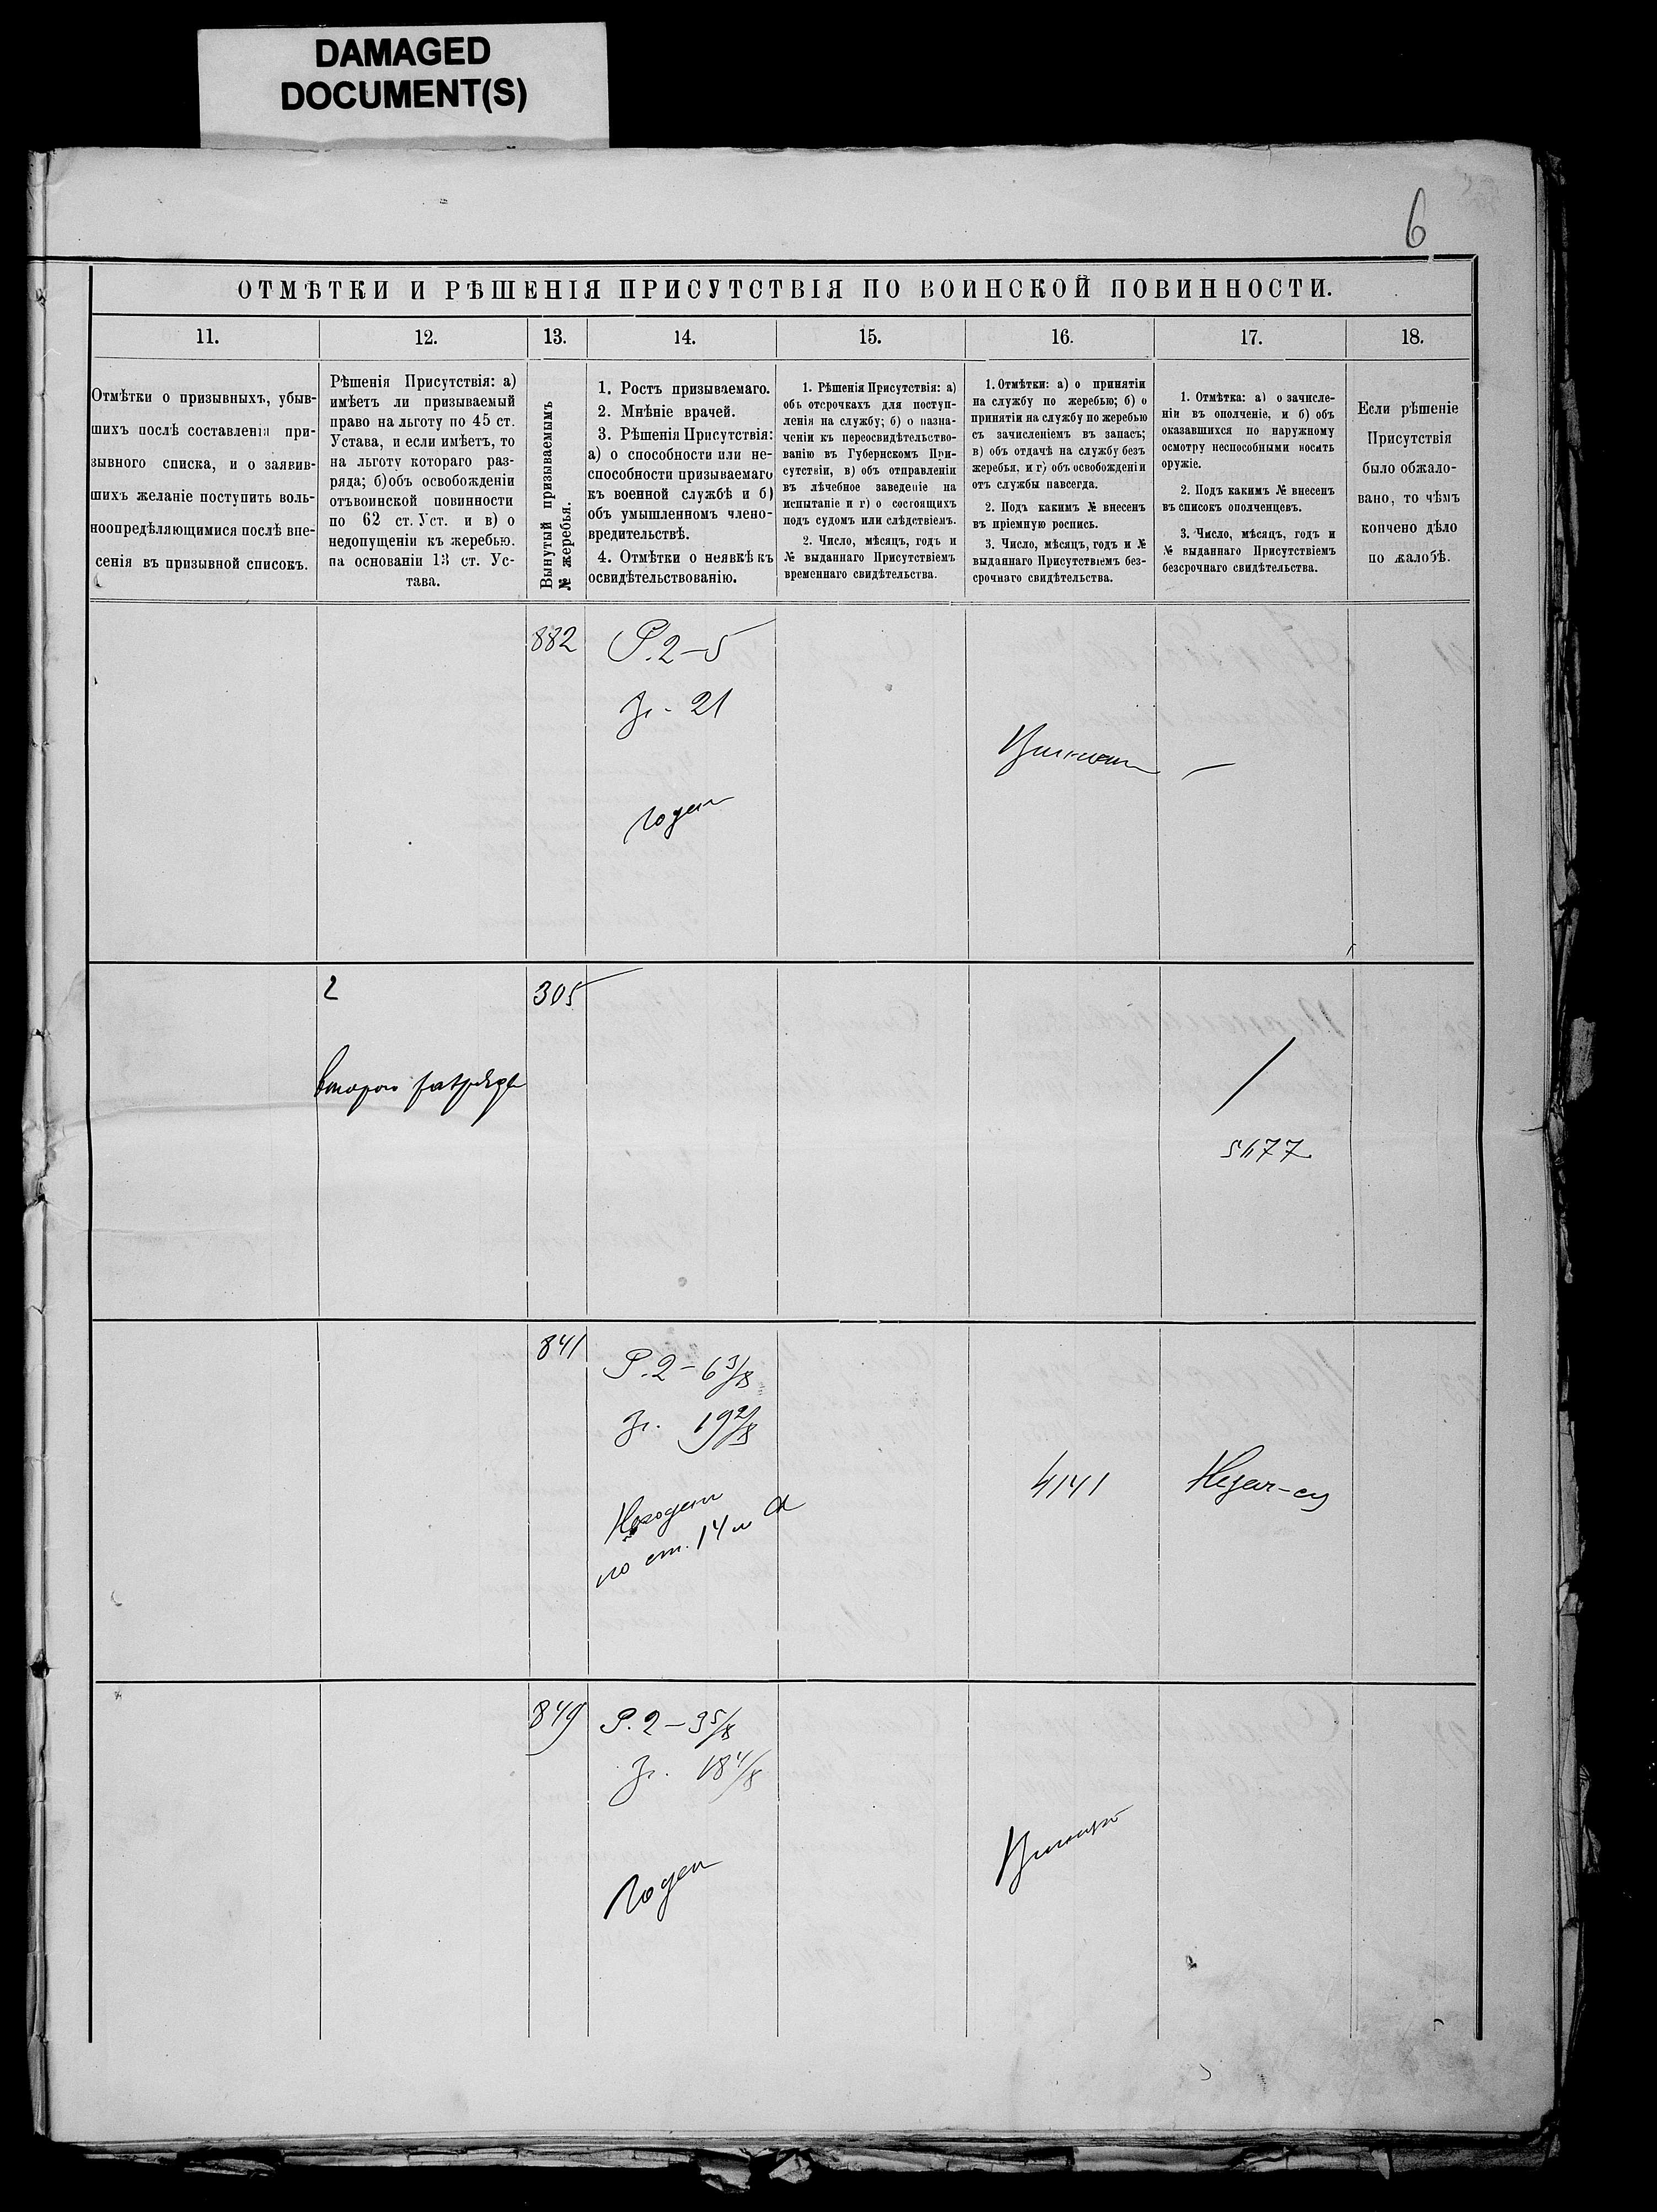 DAMAGED
DOCUMENT(S)
6
ОТМѢТКИ И РѢШЕНІЯ ПРИСУТСТВІЯ ПО ВОИНСКОЙ ПОВИННОСТИ.
11.
12.
13.
14.
15.
16.
17.
18.
Отмѣтки о призывныхъ, убыв-
шихъ послѣ составленія при-
зывного списка, и о заявив-
шихъ желаніе поступить воль-
ноопредѣляющимися послѣ вне-
сенія въ призывной списокъ.
Рѣшенія Присутствія: а)
имѣетъ ли призываемый
право на льготу по 45 ст.
Устава, и если имѣетъ, то
на льготу котораго раз-
ряда; б) объ освобожденіи
отъ воинской повинности
по 62 ст. Уст. и в) о
недопущеніи къ жеребью.
на основаніи 13 ст. Ус-
тава.
Вынутый призываемымъ
№ жеребья.
1. Ростъ призываемаго.
2. Мнѣніе врачей.
3. Рѣшенія Присутствія:
а) о способности или не-
способности призываемаго
къ военной службѣ и б)
объ умышленномъ члено-
вредительствѣ.
4. Отмѣтки о неявкѣ къ
освидѣтельствованію.
1. Рѣшенія Присутствія: а)
объ отсрочкахъ для поступ-
ленія на службу; б) о назна-
ченіи къ переосвидѣтельство-
ванію въ Губернскомъ При-
сутствіи, в) объ отправленіи
въ лѣчебное заведеніе на
испытаніе и г) о состоящихъ
подъ судомъ или слѣдствіемъ.
2. Число, мѣсяцъ, годъ и
№ выданнаго Присутствіемъ
временнаго свидѣтельства.
1. Отмѣтки: а) о принятіи
на службу по жеребью; б) о
принятіи на службу по жеребью
съ зачисленіемъ въ запасъ;
в) объ отдачѣ на службу безъ
жеребья, и г) объ освобожденіи
отъ службы навсегда.
2. Подъ какимъ № внесенъ
въ пріемную роспись.
3. Число, мѣсяцъ, годъ и №
выданнаго Присутствіемъ без-
срочнаго свидѣтельства.
1. Отмѣтка: а) о зачисле-
ніи въ ополченіе, и б) объ
оказавшихся по наружному
осмотру неспособными носить
оружіе.
2. Подъ какимъ № внесенъ
въ списокъ ополченцевъ.
3. Число, мѣсяцъ, годъ и
№ выданнаго Присутствіемъ
безсрочнаго свидѣтельства.
Если рѣшеніе
Присутствія
было обжало-
вано, то чѣмъ
кончено дѣло
по жалобѣ.
882
Р. 2-5
Гр. 21
Годен
2
второго разряда
305
5477
841
Р. 2-6 3/8
Гр. 19 2/8
Негоден
по ст. 14 и А
4141
849
Р. 2-3 5/8
Гр. 18 4/8
Годен